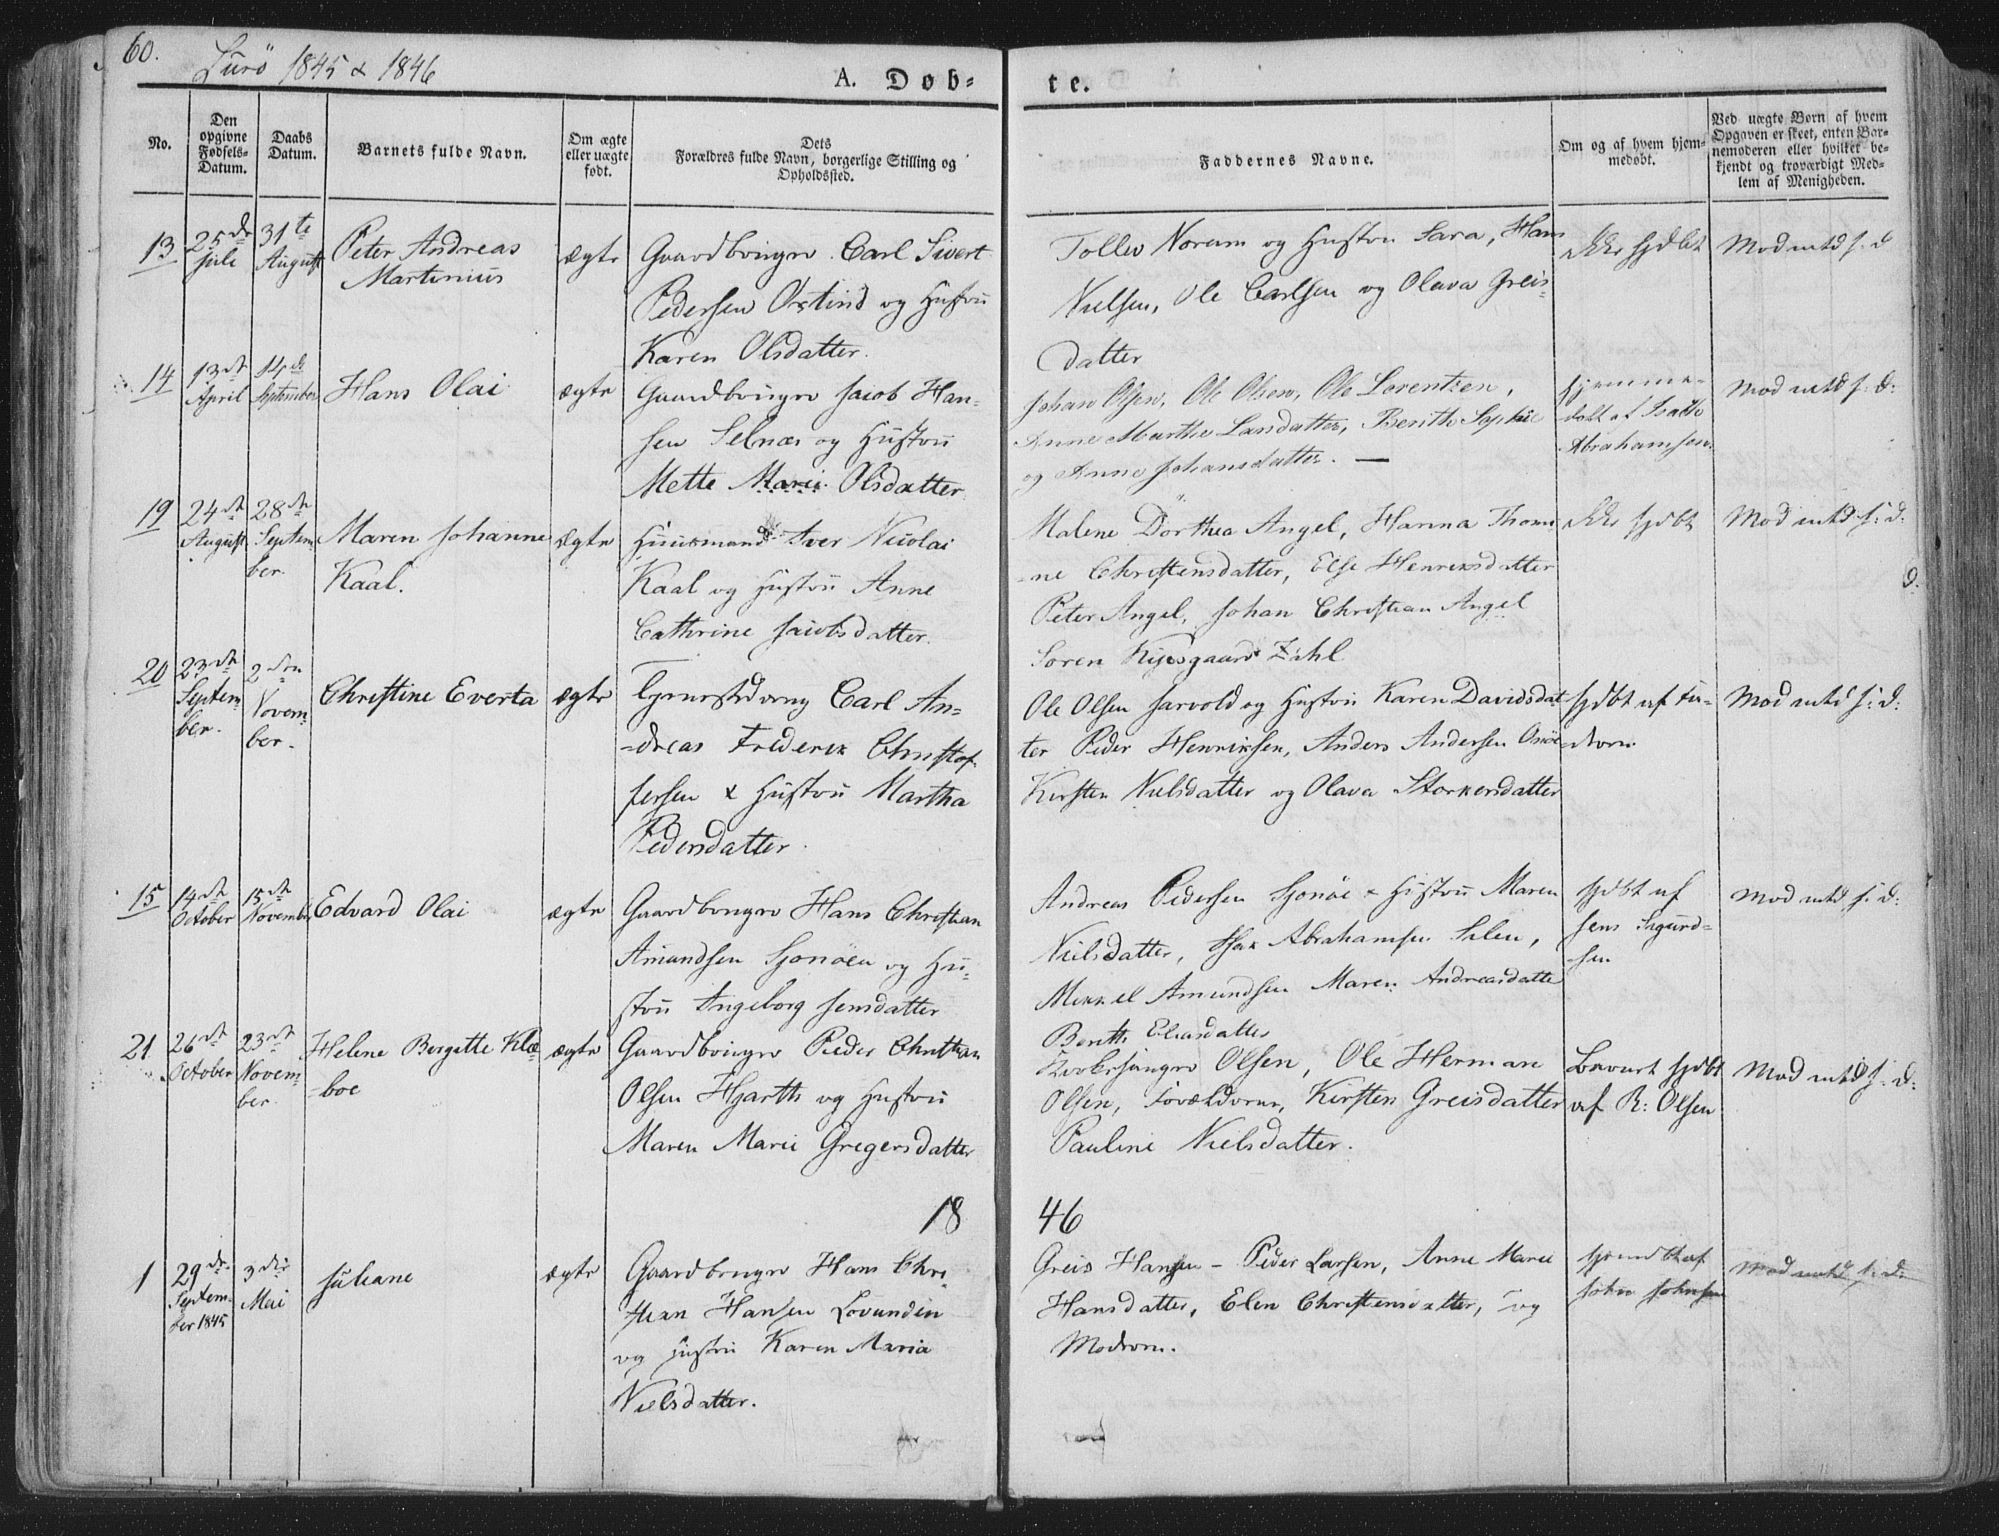 60.
Lurö 1845 & 1846
A. Døb-
te.
No.
Den opgivne Fødsels-Datum.
Daabs Datum.
Barnets fulde Navn.
Om ægte eller uægte født.
Dets Forældres fulde Navn, borgerlige Stilling og Opholdssted.
Faddernes Navne.
Om og af hvem hjemmedøbt.
Ved uægte Børn af hvem Opgaven er skeet, enten Barnemoderen eller hvilket bekjendt og troværdigt Medlem af Menigheden.
13
25de Juli
31te August
Peter Andreas
Martinius
ægte
Gaardbruger Carl Sivert
Pedersen Oxtind og Hustru
Karen Olsdatter.
Tollev Norum og Hustru Sara, Hans
Nielsen, Ole Carlsen og Olava Greis-
datter
Ikke hjdbt
14
13de April
14de September
Hans Olai
ægte
Gaardbruger Jacob Han-
sen Selnæs og Hustru
Mette Marie Olsdatter
Johan Olsen, Ole Olsen, Ole Lorentsen,
Anne Marthe Larsdatter, Berith Sophie
og Anne Johansdatter. —
hjemme-
døbt af Isach
Abrahamsen
19
24de August
28de Septem-
ber.
Maren Johanne
Kaal.
ægte
Huusmand Iver Nicolai
Kaal og Hustru Anne
Cathrine Jacobsdatter.
Malene Dorthea Angel, Hanna Thom-
ne Christensdatter, Else Henriksdatter
Peter Angel, Johan Christian Angel
Sören Zahl
Ikke hjdbt
20
23de Septem-
ber.
2den Novem-
ber.
Christine Everta
ægte
Carl An-
dreas Frederik Christof-
fersen & Hustru Martha
Pedersdatter.
Ole Olsen Sarvold og Hustru Karen Davidsdat-
ter Peder Henriksen, Anders Andersen
Kirsten Nielsdatter og Olava Storkersdatter
hjdbt af Fa-
deren
15
14de October
15de November
Edvard Olai
ægte
Gaardbruger Hans Christian
Amundsen Sjonöen og Hu-
stru Ingeborg Jensdatter
Andreas Pedersen Sjonöe & Hustru Maren
Nielsdatter, Isak Abrahamsen Selen,
Mikkel Amundsen Maren Andreasdatter
Berith Eliasdatter
hjdbt af
Jens Sigurd-
sen
21
26de October
23de Novem-
ber.
Helene Bergitte Klæ-
boe
ægte
Gaardbruger Peder Christian
Olsen Hjarth og Hustru
Maren Marie Gregersdatter
Kirkesanger Olsen, Ole Herman
Olsen, Forældrene, Kirsten Greisdatter
Pauline Nielsdatter.
hjdbt
af R: Olsen
18
46
1
29de Septem-
ber 1845
3die Mai
Juliane
ægte
Gaardbruger Hans Chri-
stian Hansen Lovunden
og Hustru Karen Maria
Nielsdatter.
Greis Hansen - Peder Larsen, Anne Marie
Hansdatter, Elen Christensdatter, og
Moderen.
John Johnsen